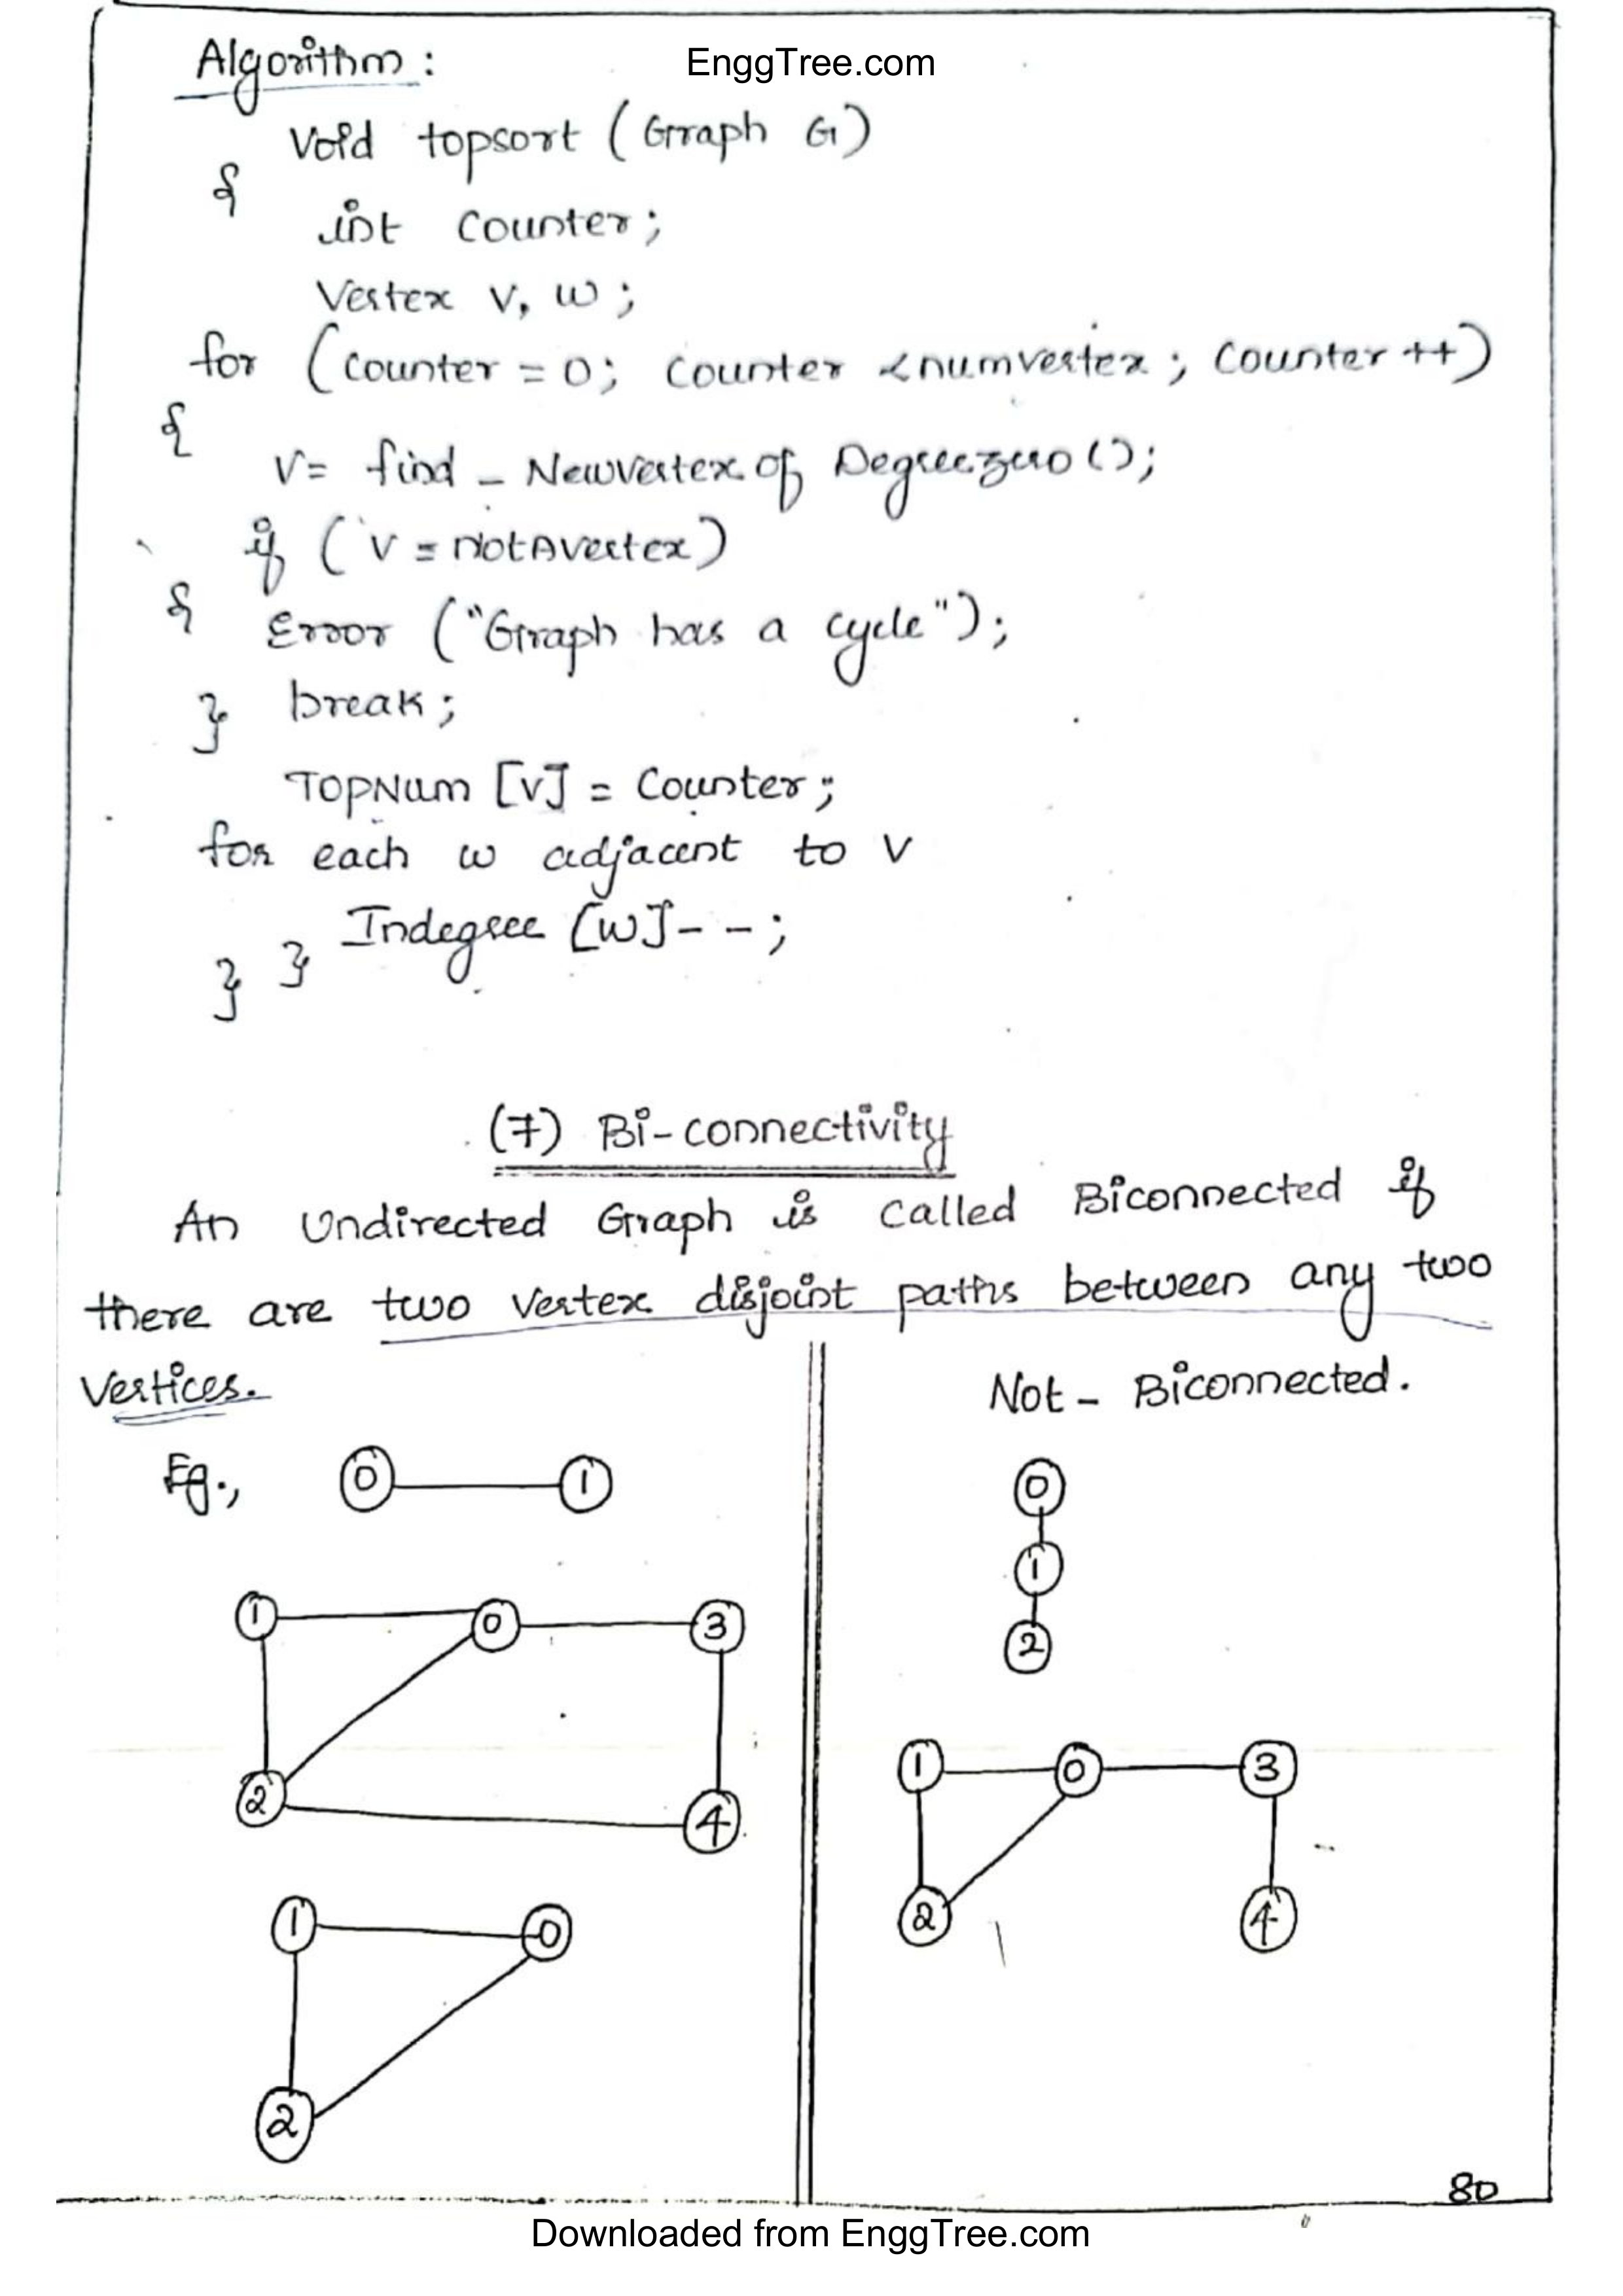 EnggTree.com
Algorithm :
Void topsort ( Graph G )
{
int counter ;
Vertex v, w ;
for ( counter = 0 ; counter < numvertex ; counter ++ )
{
v = find - Newvertex of Degreezero ( ) ;
if ( v = NotAvertex )
{
Error ( "Graph has a cycle" ) ;
} break ;
TOPNum [v] = Counter ;
for each w adjacent to v
Indegree [w] - - ;
} }
(7) Bi-connectivity
An Undirected Graph is called Biconnected if
there are two vertex disjoint paths between any two
Vertices.
Not - Biconnected.
Eg., 0 1
1 0 3
2 4
1 0
2
0
1
2
1 0 3
2 4
80
Downloaded from EnggTree.com